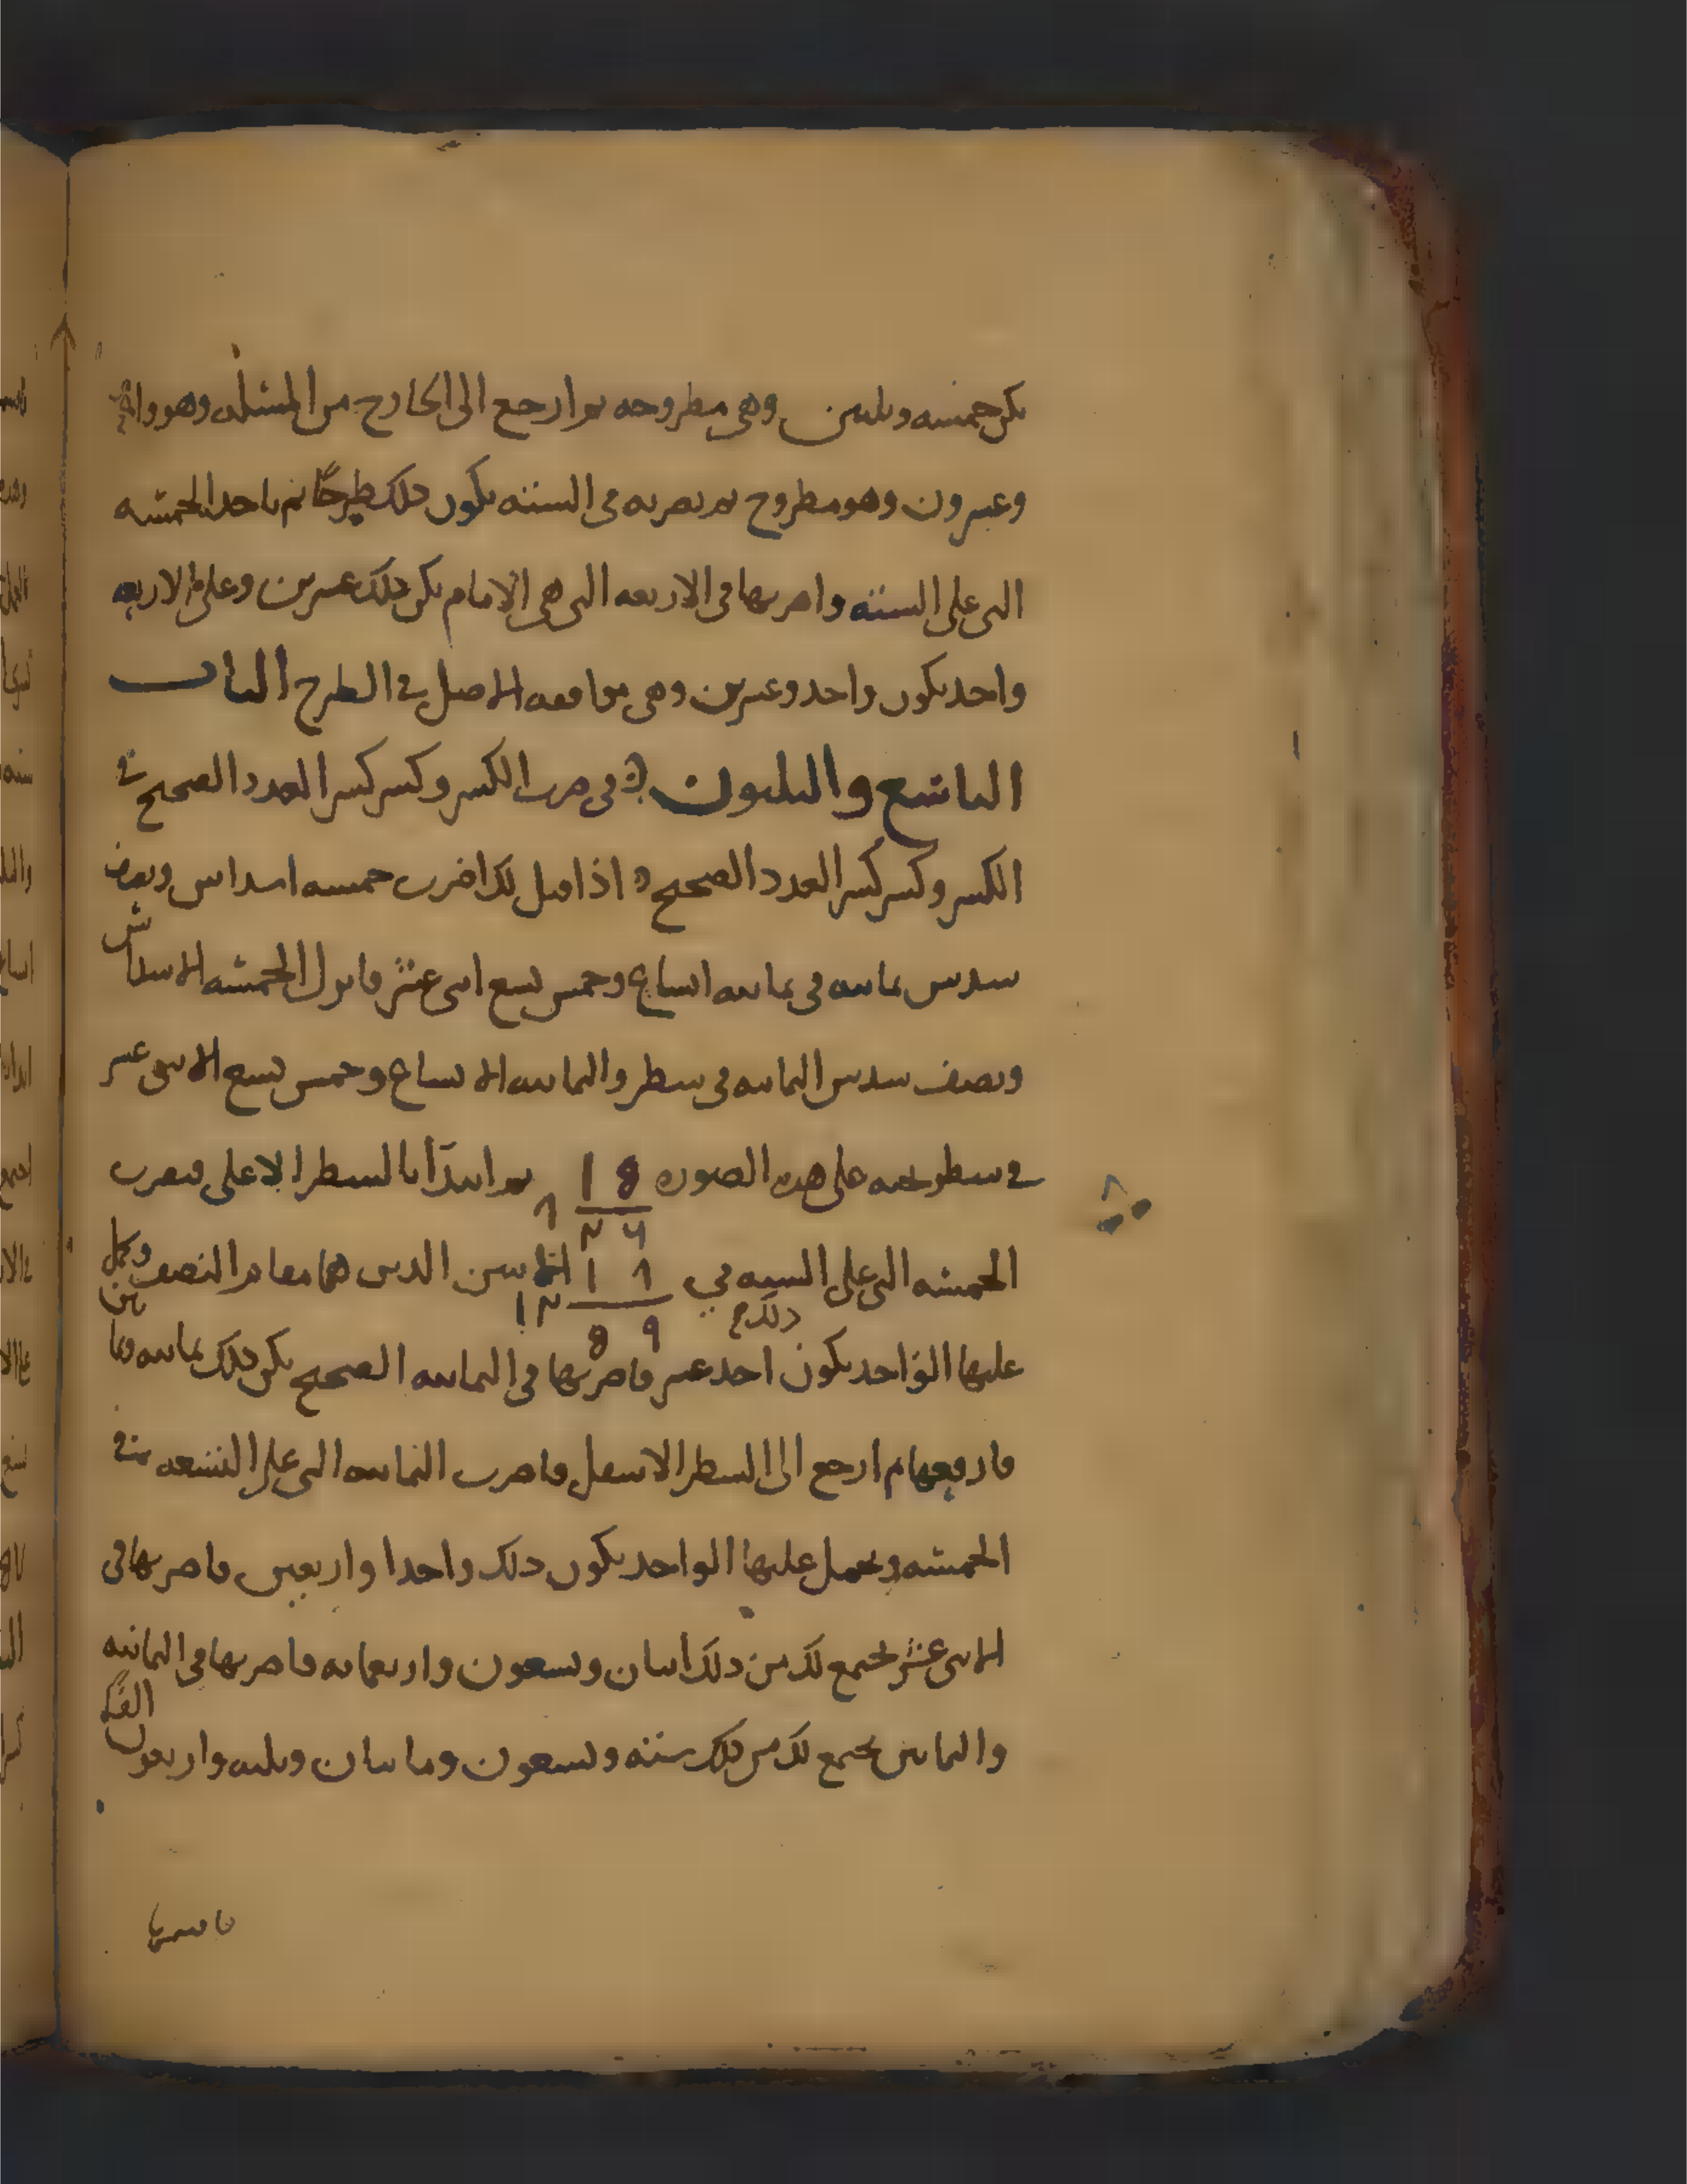 يكن خمسه وثلثين وهى مطروحه ثم ارجع الى الخارج من المسئله وهو واحد
وعشرون وهو مطروح ثم تضربه فى الستة يكون ذلك طرحًا ثم تاخذ الخمسه
التى على الستة واضربها فى الاربعه التى هى الامام يكن ذلك عشرين وعلى الاربعه
واحد يكون واحد وعشرين وهى موافقه الاصل فى الطرح الباب
التاسع والثلثون فى ضرب الكسر وكسر كسر العدد الصحيح فى
الكسر وكسر كسر العدد الصحيح اذا قيل لك اضرب خمسه اسداس ونصف
سدس ثمانيه فى ثمانيه اتساع وخمس تسع اثنى عشر فانزل الخمسه الاسداس
ونصف سدس الثمانيه فى سطر والثمانيه الاتساع وخمس تسع الاثنى عشر
فى سطر تحته على هذه الصوره ثم ابتدأ بالسطر الاعلى فتضرب
الخمسه التى على السته في الاثنين الذين هما مقام النصف وتحمل
عليها الواحد يكون احد عشر فاضربها فى الثمانيه الصحيح يكن ذلك ثمانيه وثمانين
فارفعها ثم ارجع الى السطر الاسفل فاضرب الثمانيه التى على التسعه فى
الخمسه وتحمل عليها الواحد يكون ذلك واحدا واربعين فاضربها فى
الاثنى عشر يجتمع لك من ذلك اثنان وتسعون واربعمايه فاضربها فى الثمانيه
والثمانين يجتمع لك من ذلك ستة وتسعون ومايتان وثلثه واربعون الفًا
فاقسمها